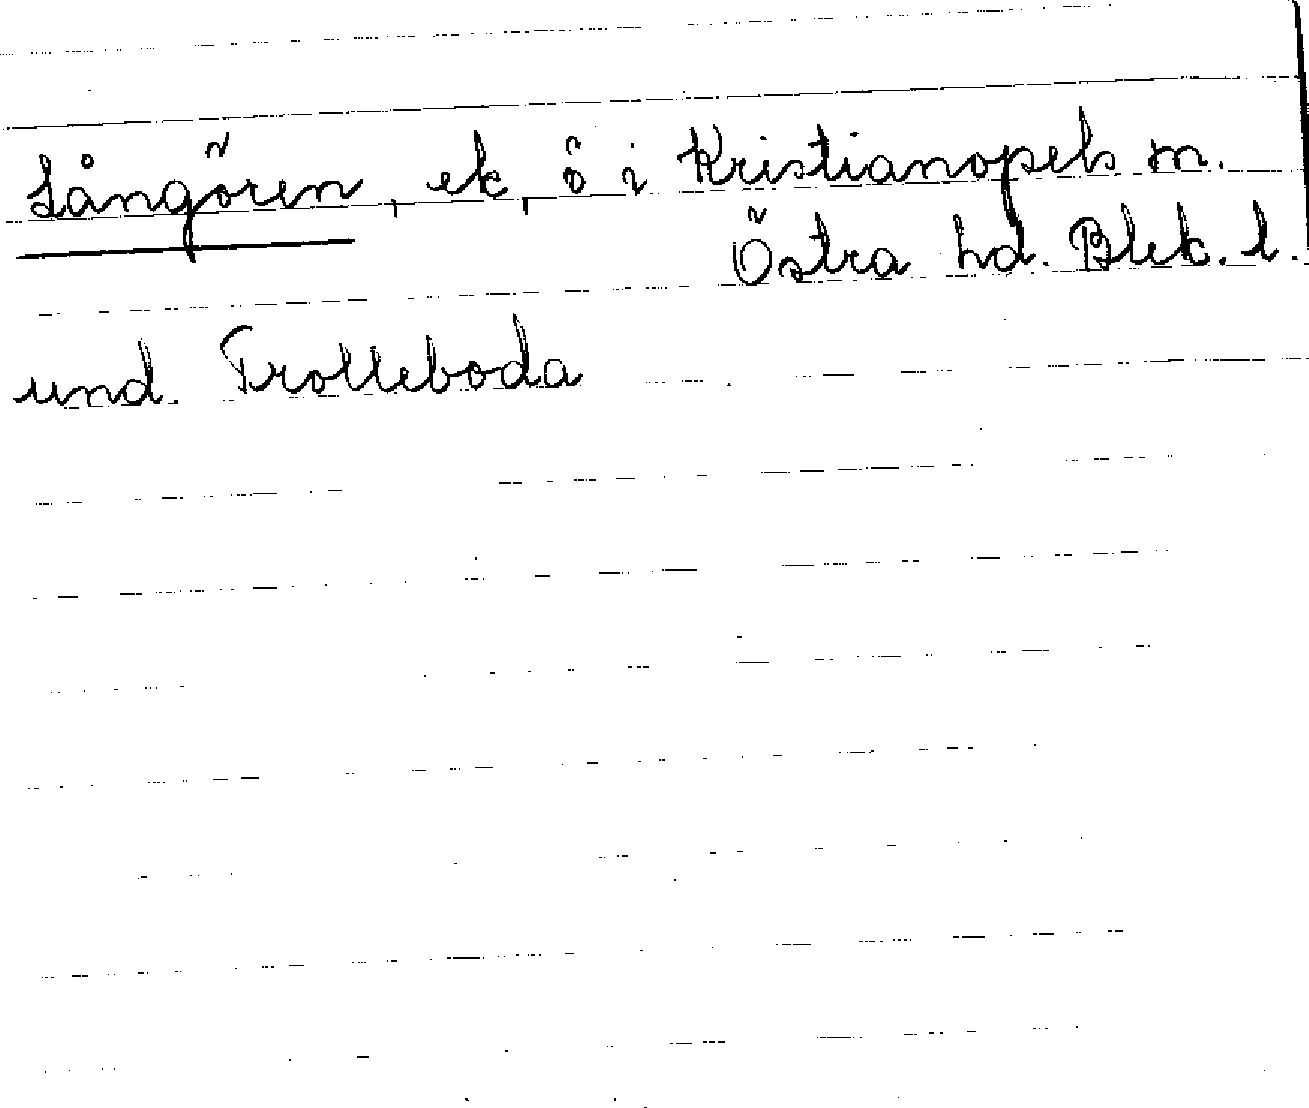 Långören, ek, ö i Kristianopels sn.
Östra hd. Blek. l.
und. Trolleboda